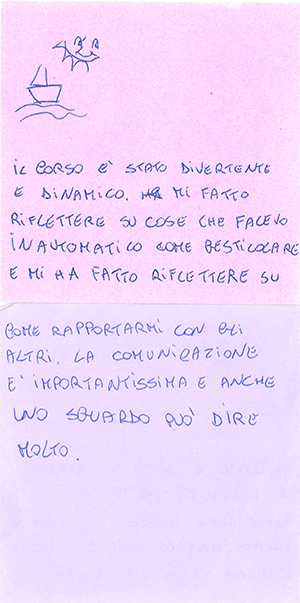 IL CORSO E' STATO DIVERTENTE
E DINAMICO. HA MI FATTO
RIFLETTERE SU COSE CHE FACEVO
IN AUTOMATICO COME GESTICOLARE
E MI HA FATTO RIFLETTERE SU
COME RAPPORTARMI CON GLI
ALTRI. LA COMUNICAZIONE
E' IMPORTANTISSIMA E ANCHE
UNO SGUARDO PUÒ DIRE
MOLTO.